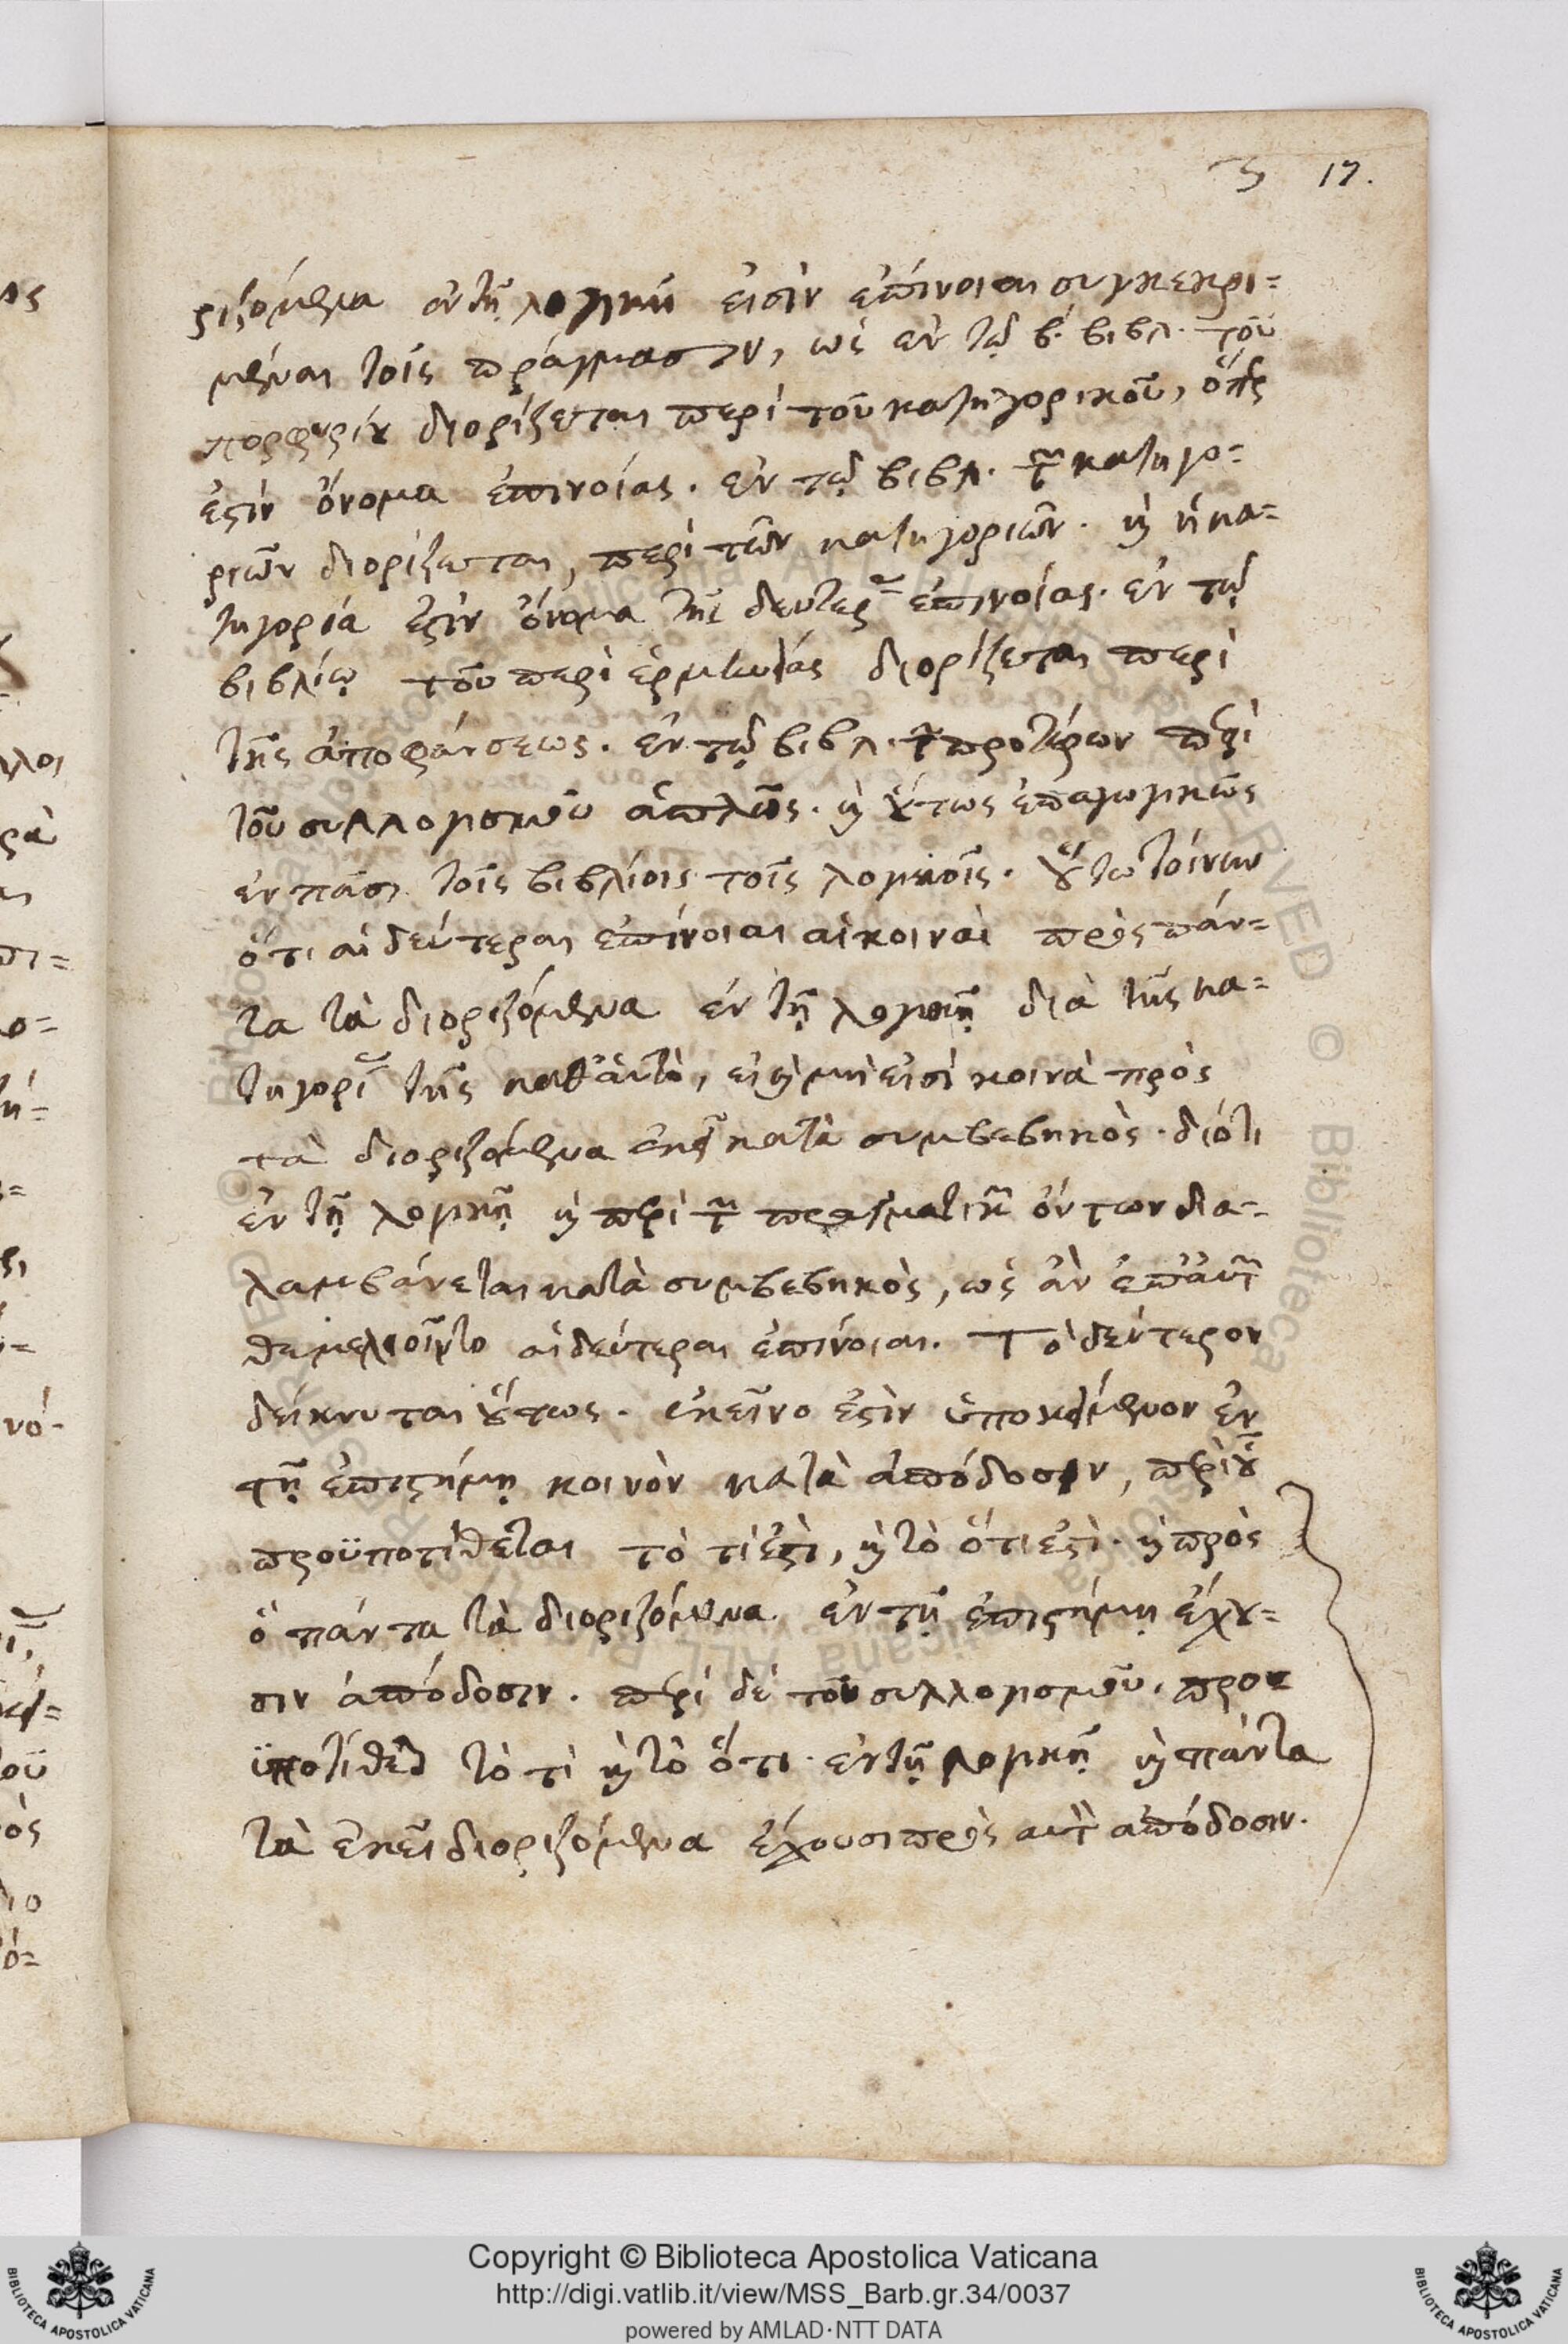 17.
ριζόμενα ἐν τῇ λογικῇ εἰσὶν ἐπίνοιαι συγκεκρι=
μέναι τοῖς πράγμασιν, ὡς ἐν τῷ β. βιβλ. τοῦ
πορφυρίου διορίζεται περὶ τοῦ κατηγορικοῦ, ὅπερ
ἐστὶν ὄνομα ἐπινοίας. ἐν τῷ βιβλ. τῶν κατηγο=
ριῶν διορίζεται, περὶ τῶν κατηγοριῶν. καὶ ἡ κα=
τηγορία ἐστὶν ὄνομα τῆς δευτέρας ἐπινοίας. ἐν τῷ
βιβλίῳ τοῦ περὶ ἑρμηνείας διορίζεται περὶ
τῆς ἀποφάνσεως. ἐν τῷ βιβλ. τῶν προτέρων περὶ
τοῦ συλλογισμοῦ ἁπλῶς. καὶ οὕτως ἐπαγωγικῶς
ἐν πᾶσι τοῖς βιβλίοις τοῖς λογικοῖς. οὕτω τοίνυν
ὅτι αἱ δεύτεραι ἐπίνοιαι αἱ κοιναὶ πρὸς πάν=
τα τὰ διοριζόμενα ἐν τῇ λογικῇ διὰ τῆς κα=
τηγορίας τῆς καθ' αὑτὸ, εἰ καὶ μὴ εἰσὶ κοινὰ πρὸς
τὰ διοριζόμενα ἐκεῖ κατὰ συμβεβηκὸς. διότι
ἐν τῇ λογικῇ καὶ περὶ τῶν πραγματικῶν ὄντων δια=
λαμβάνεται κατὰ συμβεβηκὸς, ὡς ἂν ἐπ' αὐτῶν
θεμελιοῖντο αἱ δεύτεραι ἐπίνοιαι. Τὸ δεύτερον
δείκνυται οὕτως. ἐκεῖνο ἐστὶν ὑποκείμενον ἐν
τῇ ἐπιστήμῃ κοινὸν κατὰ ἀπόδοσιν, περὶ οὗ
προϋποτίθεται τὸ τί ἐστὶ, καὶ τὸ ὅτι ἐστὶ. καὶ πρὸς
ὃ πάντα τὰ διοριζόμενα ἐν τῇ ἐπιστήμῃ ἔχου=
σιν ἀπόδοσιν. περὶ δὲ τοῦ συλλογισμοῦ, προ=
ϋποτίθεται τὸ τί καὶ τὸ ὅτι ἐν τῇ λογικῇ καὶ πάντα
τὰ ἐκεῖ διοριζόμενα ἔχουσι πρὸς αὐτὸν ἀπόδοσιν.
Copyright © Biblioteca Apostolica Vaticana
http://digi.vatlib.it/view/MSS_Barb.gr.34/0037
powered by AMLAD·NTT DATA